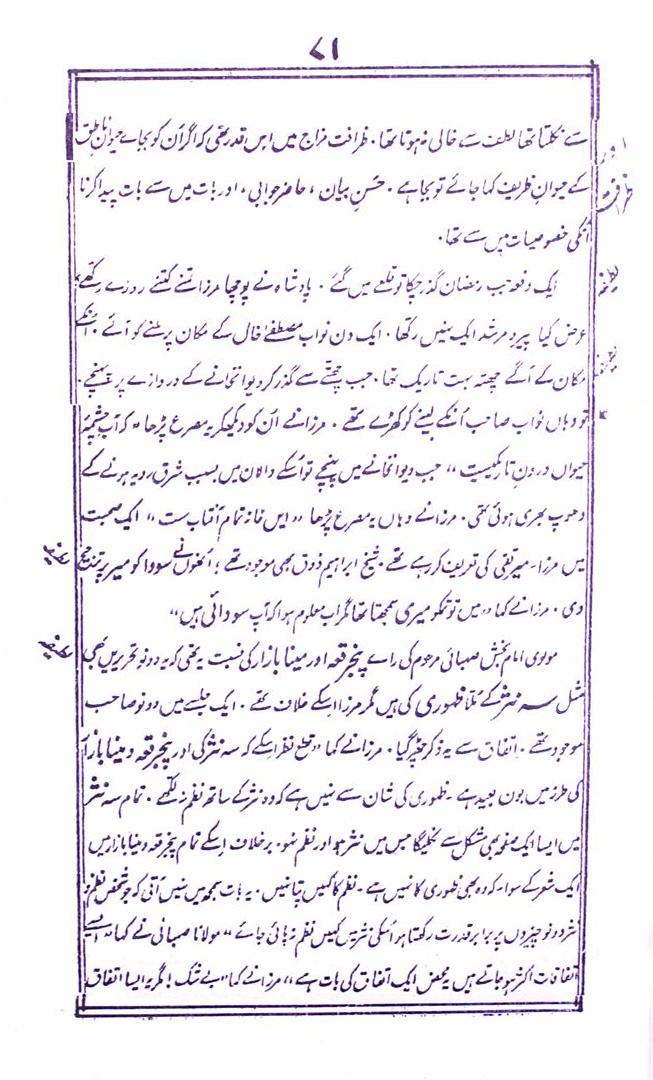 ۷۱
سے نکلتا تھا لطف سے خالی نہ ہوتا تھا۔ ظرافت مزاج میں اس قدر تھی کہ اگر اُن کو بجاے حیوانِ ناطق
کے حیوانِ ظریف کہا جائے تو بجا ہے۔ حُسنِ بیان، حاضر جوابی، اور بات میں سے بات پیدا کرنا
اُنکی خصوصیات میں سے تھا۔
اور
ظرافت
ایک دفعہ جب رمضان گذر چکا تو قلعے میں گئے۔ بادشاہ نے پوچھا مرزا تمنے کتنے روزے رکھے؟
لطیفہ
عرض کیا پیر و مرشد ایک نہیں رکھا۔ ایک دن نواب مصطفےٰ خاں کے مکان پر ملنے کو آئے۔ اُنکے
لطیفہ
مکان کے آگے چھتہ بہت تاریک تھا۔ جب چھتّے سے گذر کر دیوانخانے کے دروازے پر پہنچے۔
تو وہاں نواب صاحب اُنکے لینے کو کھڑے تھے۔ مرزا نے اُن کو دیکھکر یہ مصرع پڑھا "کہ آبِ چشمۂ
حیواں درونِ تاریکیست" جب دیوانخانے میں پہنچے تو اُسکے دالان میں بسبب شرق رویہ ہونے کے
دھوپ بھری ہوئی تھی۔ مرزا نے وہاں یہ مصرع پڑھا "ایں خانہ تمام آفتاب ست" ایک صحبت
میں مرزا۔ میر تقی کی تعریف کر رہے تھے۔ شیخ ابراہیم ذوق بھی موجود تھے؛ اُنھوں نے سودا کو میر پر ترجیح
لطیفہ
دی۔ مرزا نے کہا "میں تو تمکو میری سمجھتا تھا مگر اب معلوم ہوا کہ آپ سودائی ہیں"
مولوی امام بخش صہبائی مرحوم کی راے پنجرقعہ اور مینا بازار کی نسبت یہ تھی کہ یہ دونو تحریریں بھی
لطیفہ
مثل سہ نثر کے مُلّا ظہوری کی ہیں مگر مرزا اِسکے خلاف تھے۔ ایک جلسے میں دونو صاحب
موجود تھے۔ اتفاق سے یہ ذکر چھڑ گیا۔ مرزا نے کہا "قطع نظر اِسکے کہ سہ نثر کی اور پنجرقعہ و مینا بازار
کی طرز میں بونِ بعید ہے۔ ظہوری کی شان سے نہیں ہے کہ وہ نثر کے ساتھ نظم نہ لکھے۔ تمام سہ نثر
میں ایسا ایک صفحہ بھی مشکل سے نکلیگا جس میں نثر ہو اور نظم نہو۔ برخلاف اِسکے تمام پنجرقعہ و مینا بازار میں
ایک شعر کے سوا۔ کہ وہ بھی ظہوری کا نہیں ہے۔ نظم کا کہیں پتا نہیں۔ یہ بات سمجھ میں نہیں آتی کہ جو شخص نظم و
نثر دونو چیزوں پر برابر قدرت رکھتا ہو اُسکی نثر میں کہیں نظم نہ پائی جائے" مولانا صہبائی نے کہا "ایسے
اتفاقات اکثر ہو جاتے ہیں یہ محض ایک اتفاق کی بات ہے" مرزا نے کہا "بے شک! مگر یہ ایسا اتفاق